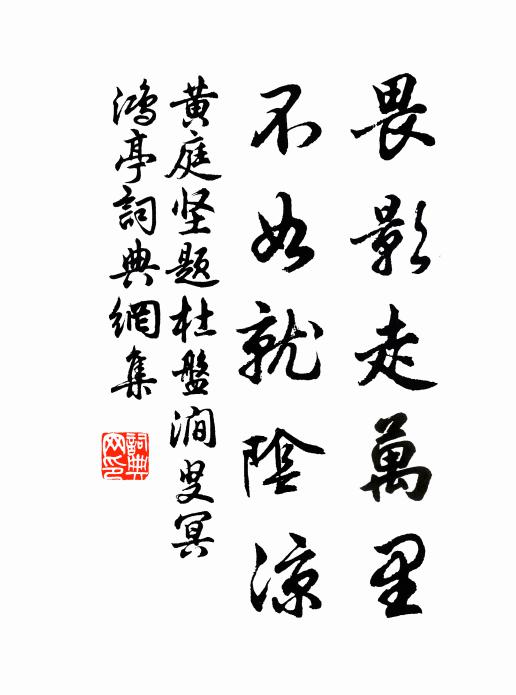 畏影走萬里
不如就陰涼
黄庭坚題杜盤澗叟冥
鴻亭詞典網集
詞典
网印